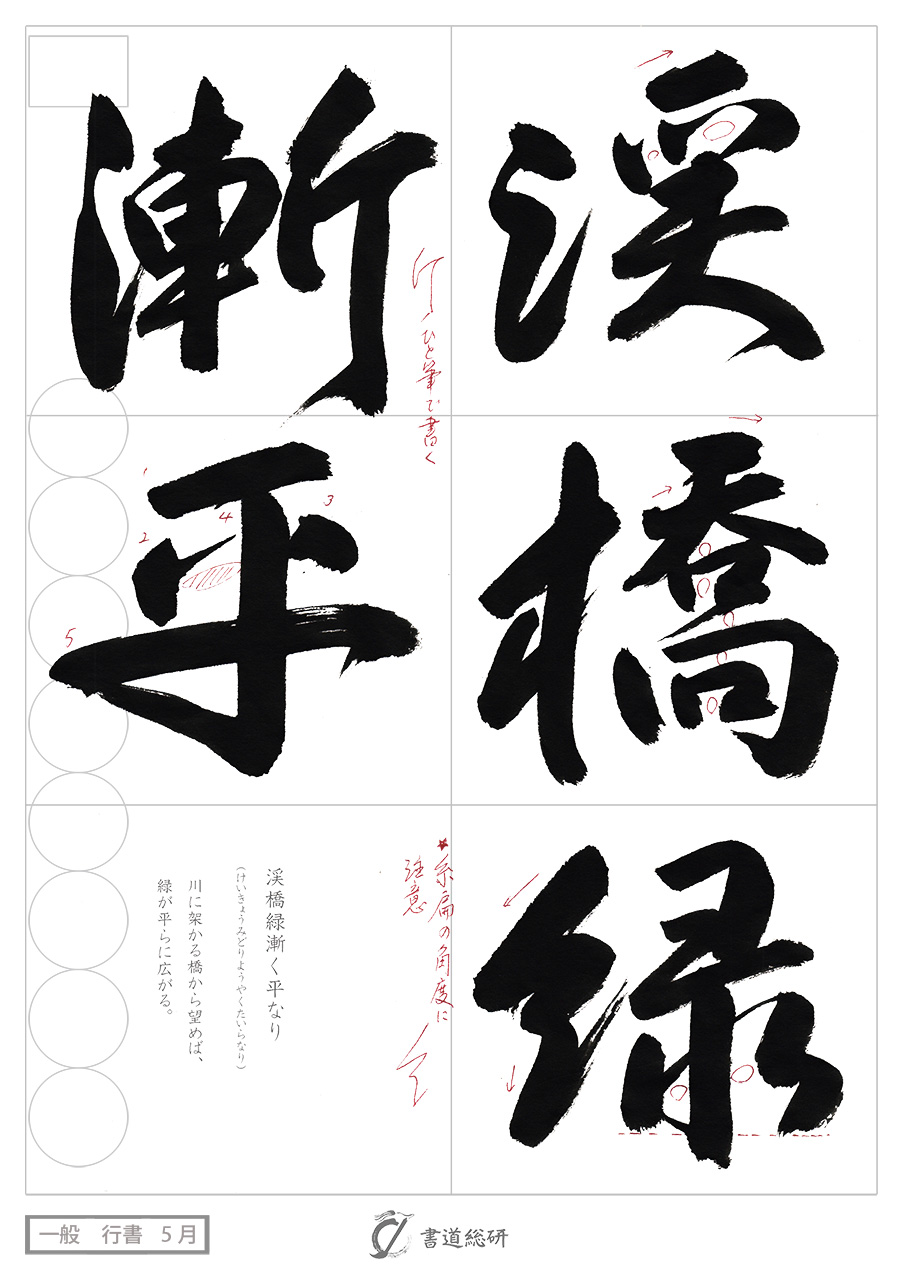 渓橋緑
漸平
1
2
3
4
5
ひと筆で書く
★糸扁の角度に
注意
渓橋緑漸く平なり
(けいきょうみどりようやくたいらなり)
川に架かる橋から望めば、
緑が平らに広がる。
一般 行書 5月
書道総研